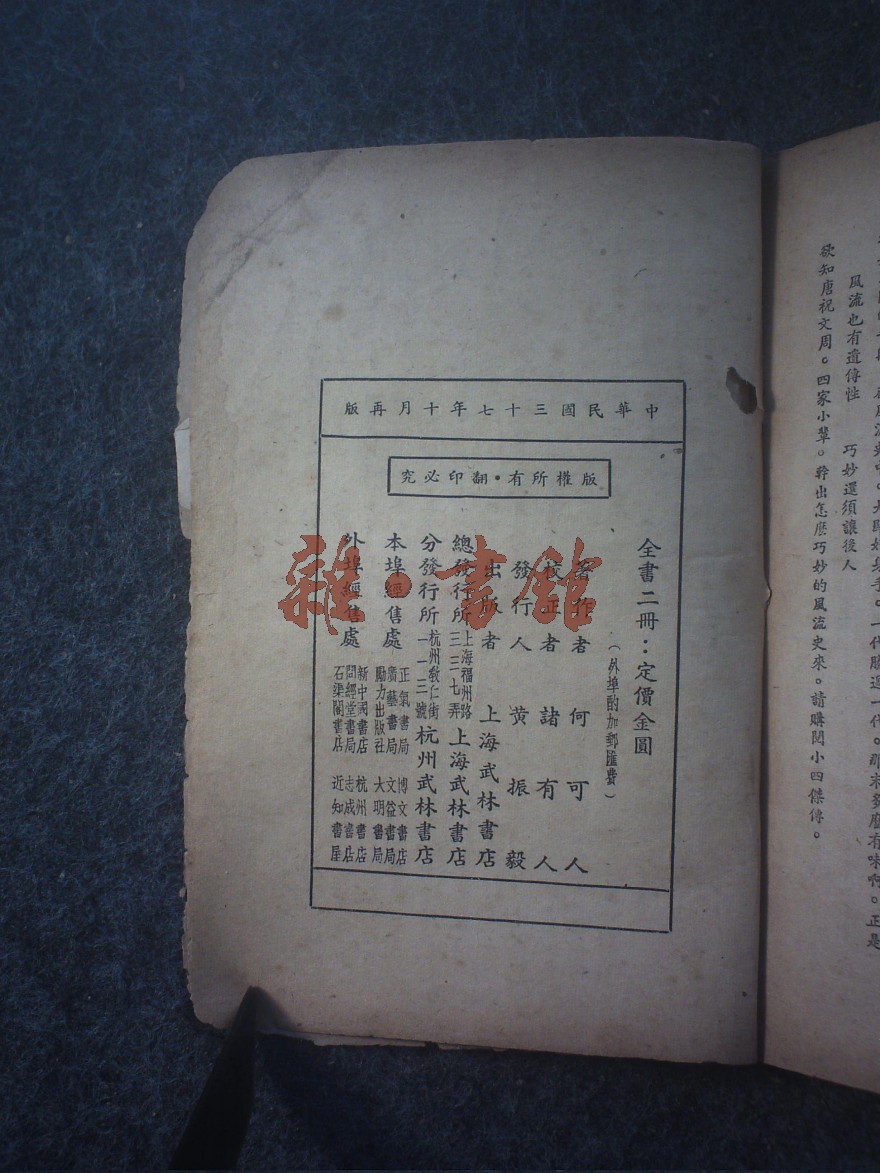 中華民國三十七年十月再版
版權所有・翻印必究
全書二冊：定價金圓
（外埠酌加郵匯費）
著作者　何可人
校正者　諸有人
發行人　黄振毅
出版者　上海武林書店
總發行所　上海福州路三三七弄　上海武林書店
分發行所　杭州教仁街一二三號　杭州武林書店
本埠經售處　正氣書局　博文書店
廣藝書局　文益書局
勵力出版社　大明書局
外埠經售處　新中國書店　杭州書店
問經堂書局　志成書店
石渠閣書店　近知書屋
雜·書館
一代勝過一代。那末多麽有味啊。正是
風流也有遺傳性　巧妙還須讓後人
欲知唐祝文周。四家小輩。幹出怎麽巧妙的風流史來。請購閱小四傑傳。